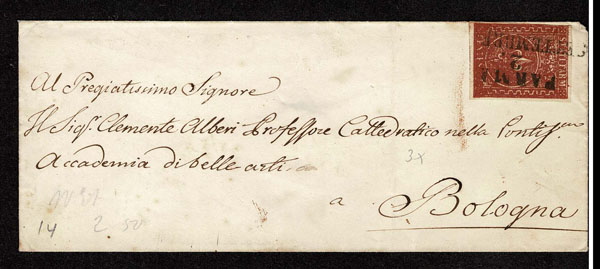 Al Pregiatissimo Signore
Il Sig.r Clemente Alberi Professore Cattedratico nella Pontif.cia
Accademia di belle arti
a
Bologna
PARMA
2
SETTEMBRE
3x
14
2 50